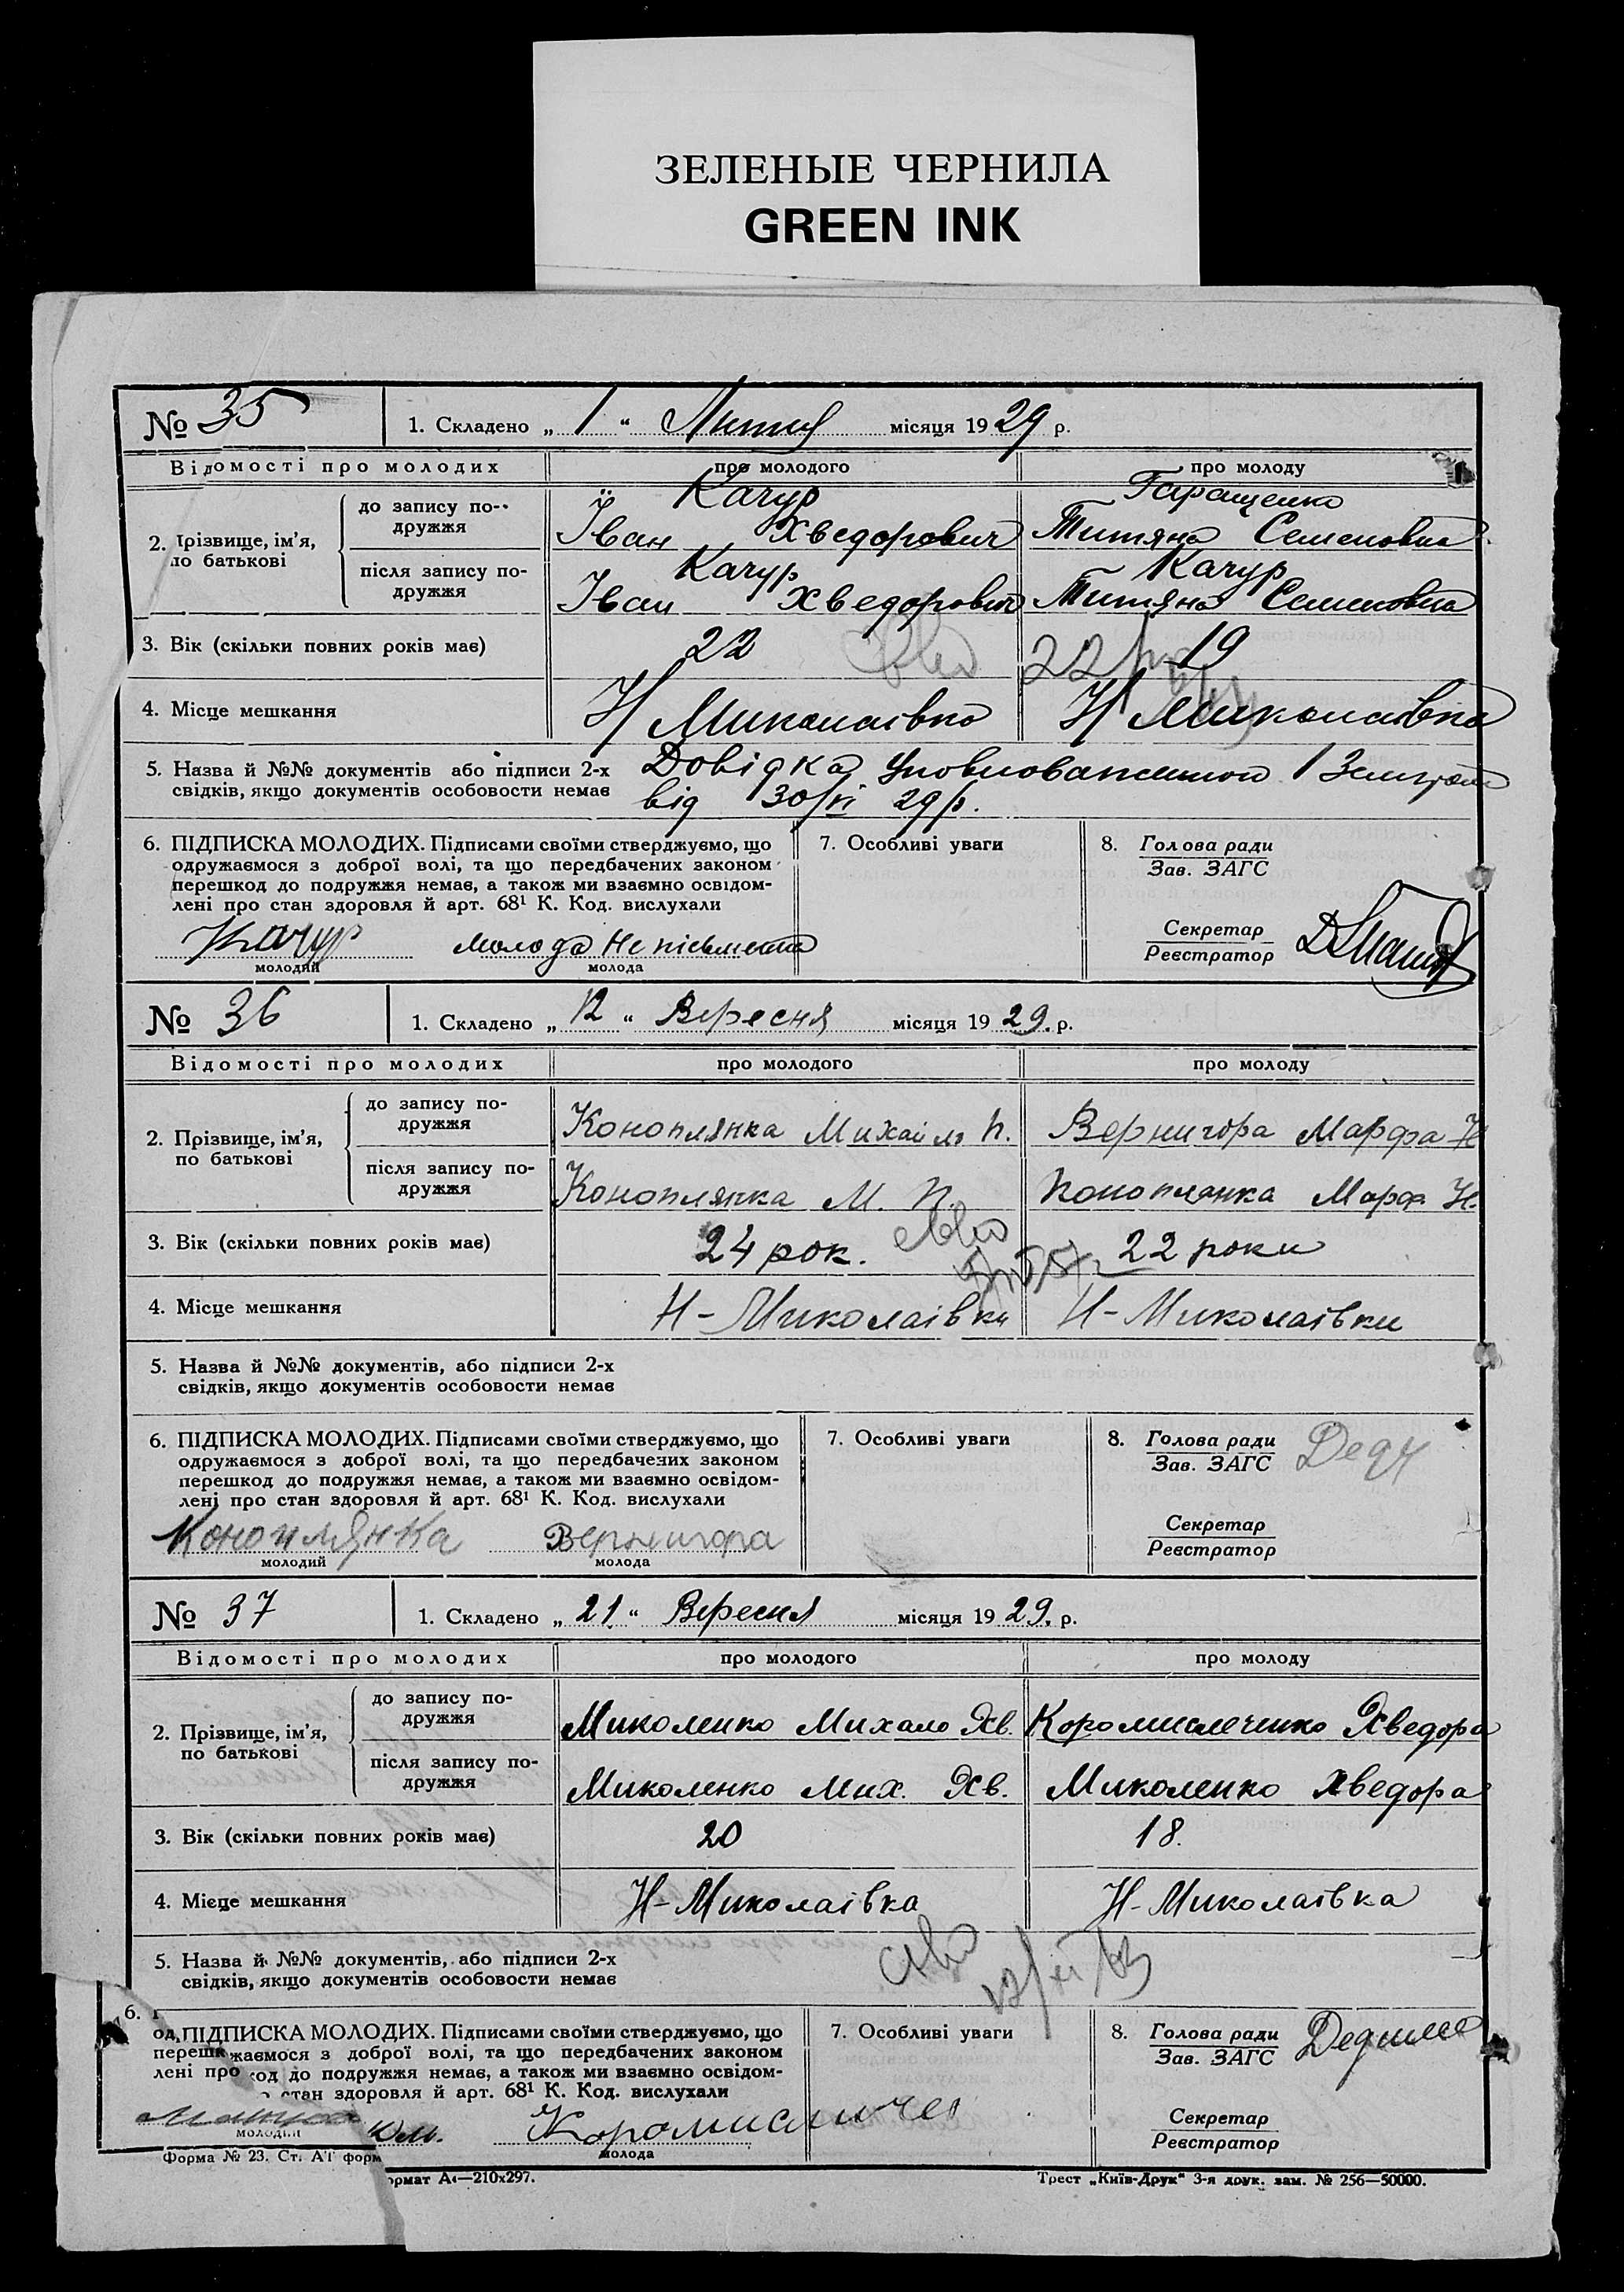 ЗЕЛЕНЫЕ ЧЕРНИЛА
GREEN INK
№ 35
1. Складено „ 1 “ Липня місяця 1929 р.
Відомості про молодих
про молодого
про молоду
2. Прізвище, ім’я, по батькові
до запису подружжя
Качур
Іван Хведорович
Гаращенко
Титяна Семеновна
після запису подружжя
Качур
Іван Хведорович
Качур
Титяна Семеновна
3. Вік (скільки повних років має)
22
19
4. Місце мешкання
Н Миколаівка
Н Миколаівка
5. Назва й №№ документів або підписи 2-х
свідків, якщо документів особовости немає
Довідка Уповноваженного 1
від 30/VI 29 р.
6. ПІДПИСКА МОЛОДИХ. Підписами своїми стверджуємо, що
одружаємося з доброї волі, та що передбачених законом
перешкод до подружжя немає, а також ми взаємно освідом-
лені про стан здоровля й арт. 68¹ К. Код. вислухали
Качур
молодий
молода не письменна
молода
7. Особливі уваги
8. Голова ради
Зав. ЗАГС
Секретар
Реєстратор
№ 36
1. Складено „ 12 “ Вересня місяця 1929. р.
Відомості про молодих
про молодого
про молоду
2. Прізвище, ім’я,
по батькові
до запису по-
дружжя
Коноплянка Михайло П.
Вернигора Марфа Н
після запису по-
дружжя
Коноплянка М. П.
Коноплянка Марф. Н.
3. Вік (скільки повних років має)
24 рок.
22 роки
4. Місце мешкання
Н-Миколаівки
Н-Миколаівки
5. Назва й №№ документів, або підписи 2-х
свідків, якщо документів особовости немає
6. ПІДПИСКА МОЛОДИХ. Підписами своїми стверджуємо, що
одружаємося з доброї волі, та що передбачених законом
перешкод до подружжя немає, а також ми взаємно освідом-
лені про стан здоровля й арт. 68¹ К. Код. вислухали
Коноплянка
молодий
Вернигора
молода
7. Особливі уваги
8. Голова ради
Зав. ЗАГС
Секретар
Реєстратор
№ 37
1. Складено „ 21 “ Вересня місяця 1929. р.
Відомості про молодих
про молодого
про молоду
2. Прізвище, ім’я,
по батькові
до запису по-
дружжя
Миколенко Михало Хв.
Коромисленко Хведора
після запису по-
дружжя
Миколенко Мих. Хв.
Миколенко Хведора
3. Вік (скільки повних років має)
20
18.
4. Місце мешкання
Н-Миколаівка
Н-Миколаівка
5. Назва й №№ документів, або підписи 2-х
свідків, якщо документів особовости немає
6.
ПІДПИСКА МОЛОДИХ. Підписами своїми стверджуємо, що
жаємося з доброї волі, та що передбачених законом
лені про код до подружжя немає, а також ми взаємно освідом-
стан здоровля й арт. 68¹ К. Код. вислухали
молодий
молода
7. Особливі уваги
8. Голова ради
Зав. ЗАГС
Секретар
Реєстратор
Форма № 23. Ст. А1 форм
ормат А4—210x297.
Трест „Київ-Друк“ 3-я друк. зам. № 256—50000.